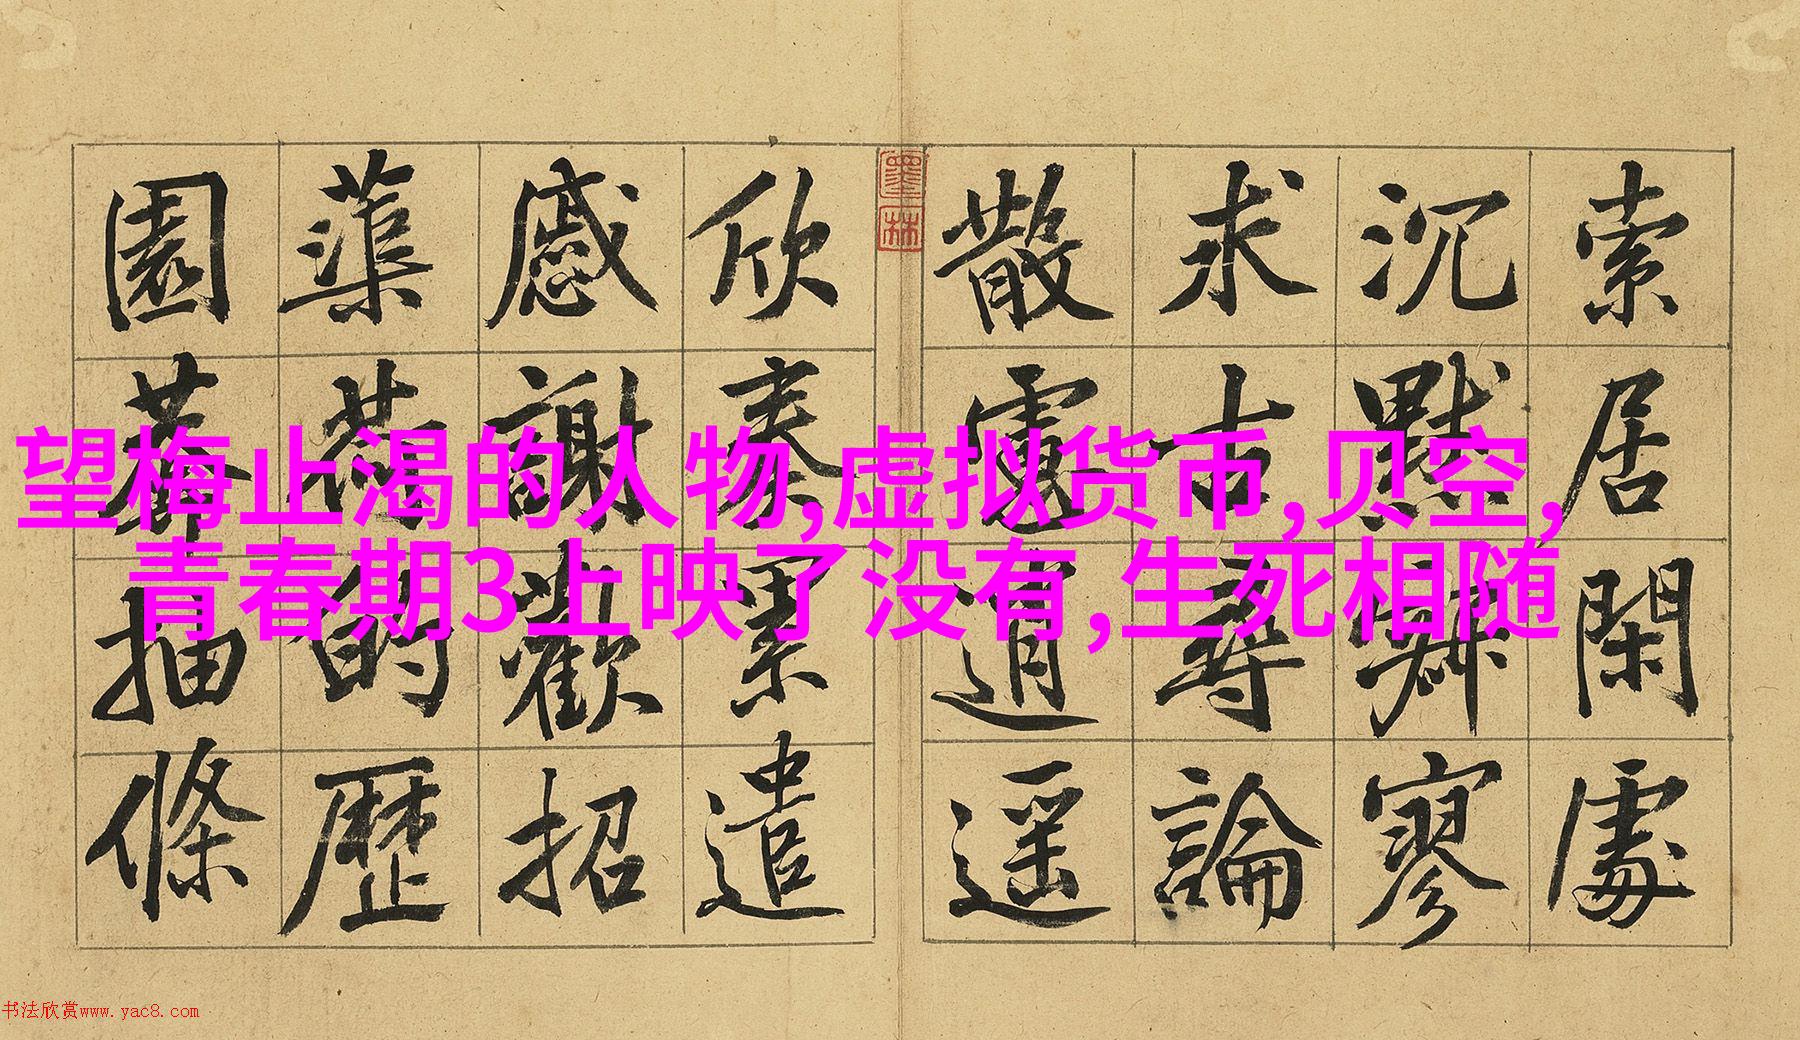 望梅止渴的人物,虚拟货币,贝空,
青春期3上映了没有,生死相随
索居閑處
沉默寂寥
求古尋論
散慮逍遥
墨林
欣奏累遣
慼謝歡招
蕖荷的歷
園莽抽條
书法欣赏www.yac8.com